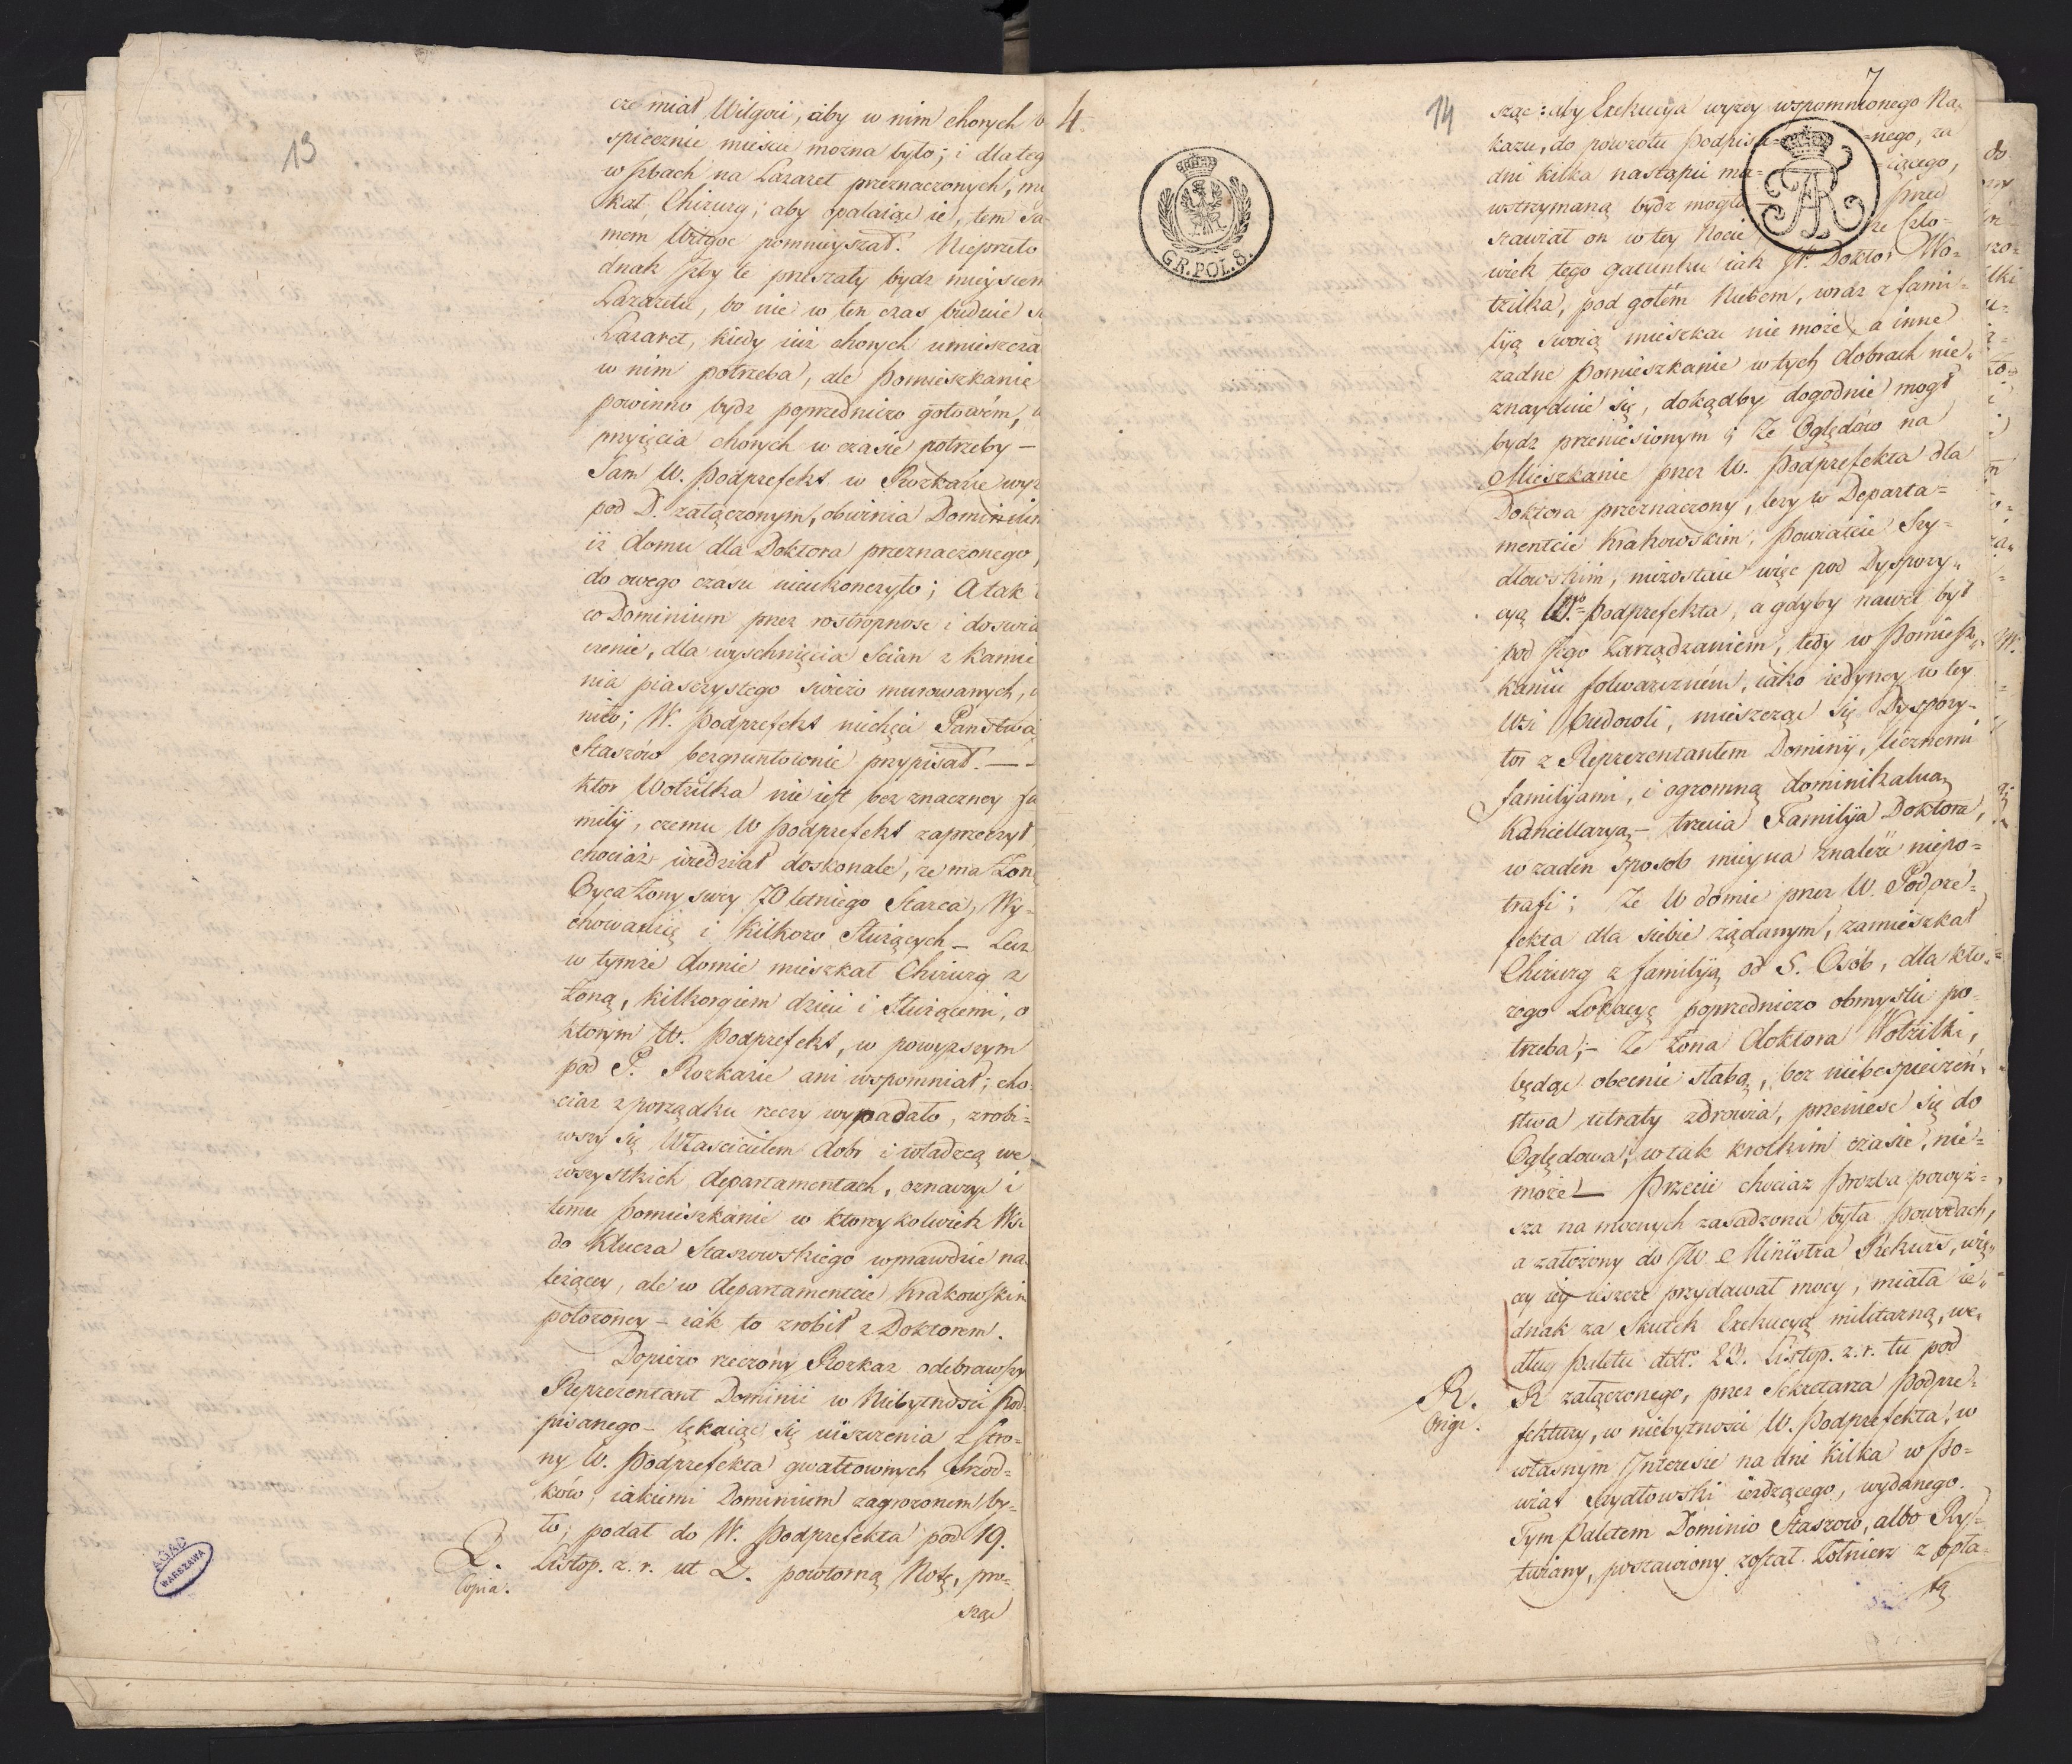 13
cze miał Wilgoci, aby w nim chorych
spiecznie mieścić można było; i dla teg
w Izbach na Lazaret przeznaczonych, mi
szkał Chirurg; aby opalaiąc ie, tem sa-
mem Wilgoć pomnieyszał. Nieprzeto
dnak Izby te przestały bydź mieyscem
Lazaretu, bo nie w ten czas budzie się
Lazaret, kiedy iuż chorych umieszcza
w nim potrzeba, ale Pomieszkanie
powinno bydz poprzedniczo gotowém,
przyięcia chorych w czasie potrzeby —
Sam W. Podprefekt w Rozkazie wyż
pod D. załączonym, obwinia Dominium
iż domu dla Doktora przeznaczonego,
do owego czasu nieukończyło; A tak
co Dominium przez rostropność i doswia
czenie, dla wyschnięcia Scian z kamie
nia piasczystego swieżo murowanych,
niło; W. Podprefekt niechęci Państwa
Staszów bezgruntownie przypisał. —
ktor Wotzilka nie iest bez znaczney fa
milij, czemu W Podprefekt zaprzeczył
chociaż wiedział doskonale, ze ma Żon
Oyca Żony swey 70 letniego Starca, Wy-
chowanicę i kilkoro Służących — Lecz
w tymże domie mieszkał Chirurg z
Żoną, kilkorgiem dzieci i Służącemi, o
ktorym W. Podprefekt, w powyższym
pod P. Rozkazie ani wspomniał; cho-
ciaz z porządku rzeczy wypadało, zrobi-
wszy się Właścicielem dobr i władzcą we
wszystkich departamentach, oznaczyć i
temu Pomieszkanie w ktorey kolwiek Wsi
do Klucza Staszowskiego wprawdzie na-
leżącey, ale w departamencie Krakowskim
położoney — iak to zrobił z Doktorem.
Dopiero rzeczony Rozkaz odebrawszy
Reprezentant Dominii w Niebytności Pod-
pisanego — lękaiąc się uiszczenia z Stro-
ny W. Podprefekta gwałtownych Srzod-
ków, iakiemi Dominium zagrożonem by-
ło; podał do W. Podprefekta pod 19.
Q. Listop. z. r. ut Q. powtorną Notę, pro-
Copia.
sząc
AGAD
WARSZAWA
4.
GR. POL. 8.
14
7
sząc: aby Exekucya wyżey wspomnionego Na-
kazu, do powrotu Podpisa- =nego, za
dni kilka nastąpić ma- =iącego,
wstrzymaną bydz mogła przed
stawiał on w tey Nocie że Czło-
wiek tego gatunku iak W. Doktor Wo-
tzilka, pod gołém Niebem, wraz z fami-
lyą swoią mieszkać nie może, a inne
żadne Pomieszkanie w tych dobrach nie-
znayduie się, dokądby dogodnie mogł
bydz przeniesionym; Ze Oględów na
Mieszkanie przez W. Podprefekta dla
Doktora przeznaczony, leży w Departa=
mencie Krakowskim, Powiatcie Szy-
dłowskim, niezostaie więc pod Dyspozy-
cyą W. Podprefekta, a gdyby nawet był
pod Jego Zarządzaniem, tedy w Pomiesz-
kaniu folwarcznem, iako iedyney w tey
Wsi budowli, mieszcząc się Dyspozy-
tor z Reprezentantem Dominij, licznemi
familijami, i ogromną dominikalną
Kancellaryą, — trzecia Familija Doktora,
w żaden sposob mieysca znaleźć niepo=
trafi; Ze W domie przez W. Podpre-
fekta dla siebie żądanym, zamieszkał
Chirurg z familiją od 5. Osób, dla kto-
rego Lokacyę poprzedniczo obmyślić po-
trzeba; — Ze Żona doktora Wotzilki,
będąc obecnie słabą, bez niebespieczeń-
stwa utraty zdrowia, przeniesc się do
Oględowa, w tak krotkim czasie, nie-
może! — Przecie chociaz Prozba powyż-
sza na mocnych zasadzona była Powodach,
a założony do JW Ministra Rekurs, wię-
cy iey ieszcze przydawał mocy, miała ie-
dnak za Skutek Exekucyą militarną, we-
dług Paletu ddto. 23. Listop. z. r. tu pod
R. R załączonego, przez Sekretarza Podpre-
Origi. fektury, w niebytności W. Podprefekta, w
własnym Interesie na dni kilka w Po-
wiat Szydłowski ieżdżącego, wydanego.
Tym Paletem Dominio Staszow, albo Ry-
twiany, postawiony został Żołnierz z opła-
tą